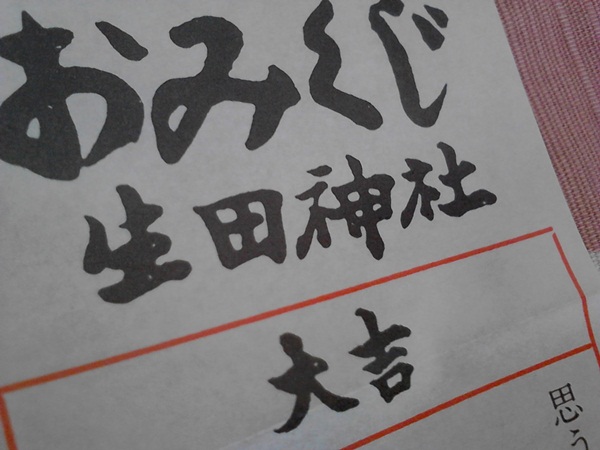 おみくじ
生田神社
大吉
思う